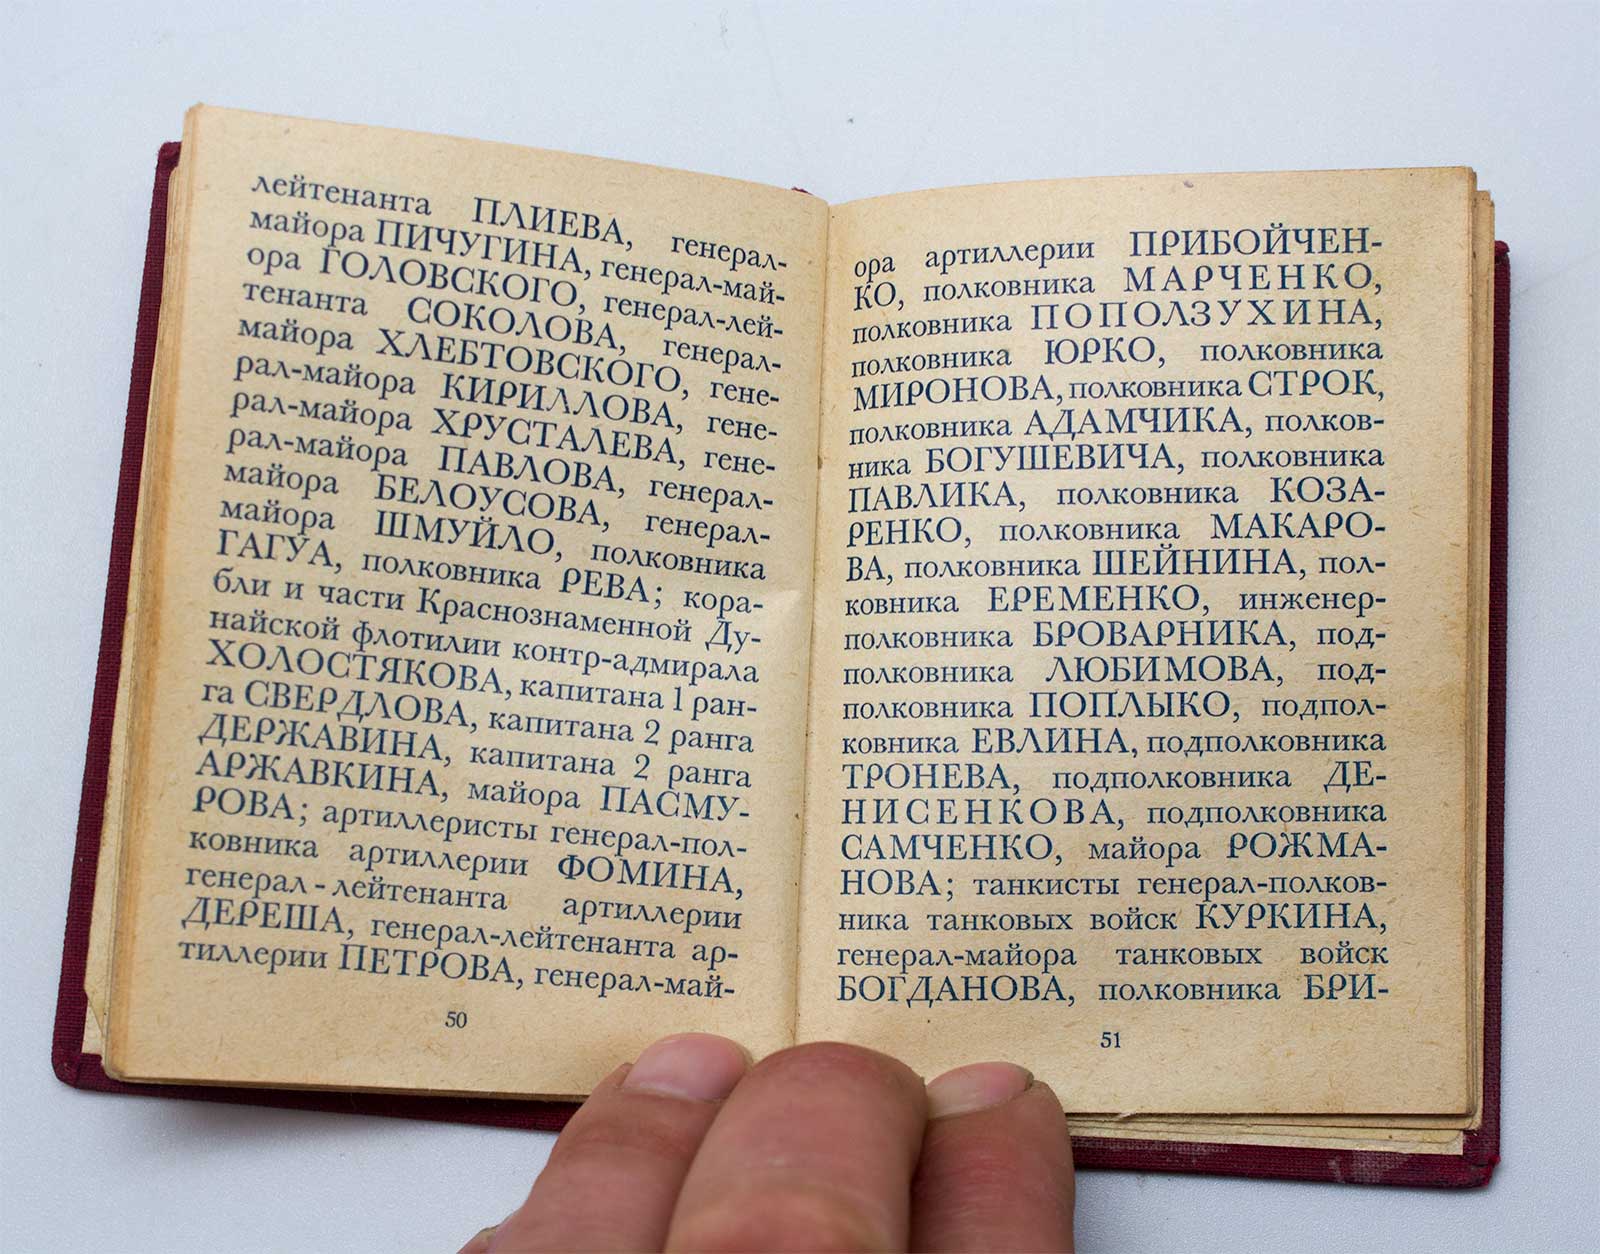 лейтенанта ПЛИЕВА, генерал-
майора ПИЧУГИНА, генерал-май-
ора ГОЛОВСКОГО, генерал-лей-
тенанта СОКОЛОВА, генерал-
майора ХЛЕБТОВСКОГО, гене-
рал-майора КИРИЛЛОВА, гене-
рал-майора ХРУСТАЛЕВА, гене-
рал-майора ПАВЛОВА, генерал-
майора БЕЛОУСОВА, генерал-
майора ШМУЙЛО, полковника
ГАГУА, полковника РЕВА; кора-
бли и части Краснознаменной Ду-
найской флотилии контр-адмирала
ХОЛОСТЯКОВА, капитана 1 ран-
га СВЕРДЛОВА, капитана 2 ранга
ДЕРЖАВИНА, капитана 2 ранга
АРЖАВКИНА, майора ПАСМУ-
РОВА; артиллеристы генерал-пол-
ковника артиллерии ФОМИНА,
генерал-лейтенанта артиллерии
ДЕРЕША, генерал-лейтенанта ар-
тиллерии ПЕТРОВА, генерал-май-
50
ора артиллерии ПРИБОЙЧЕН-
КО, полковника МАРЧЕНКО,
полковника ПОПОЛЗУХИНА,
полковника ЮРКО, полковника
МИРОНОВА, полковника СТРОК,
полковника АДАМЧИКА, полков-
ника БОГУШЕВИЧА, полковника
ПАВЛИКА, полковника КОЗА-
РЕНКО, полковника МАКАРО-
ВА, полковника ШЕЙНИНА, пол-
ковника ЕРЕМЕНКО, инженер-
полковника БРОВАРНИКА, под-
полковника ЛЮБИМОВА, под-
полковника ПОПЛЫКО, подпол-
ковника ЕВЛИНА, подполковника
ТРОНЕВА, подполковника ДЕ-
НИСЕНКОВА, подполковника
САМЧЕНКО, майора РОЖМА-
НОВА; танкисты генерал-полков-
ника танковых войск КУРКИНА,
генерал-майора танковых войск
БОГДАНОВА, полковника БРИ-
51